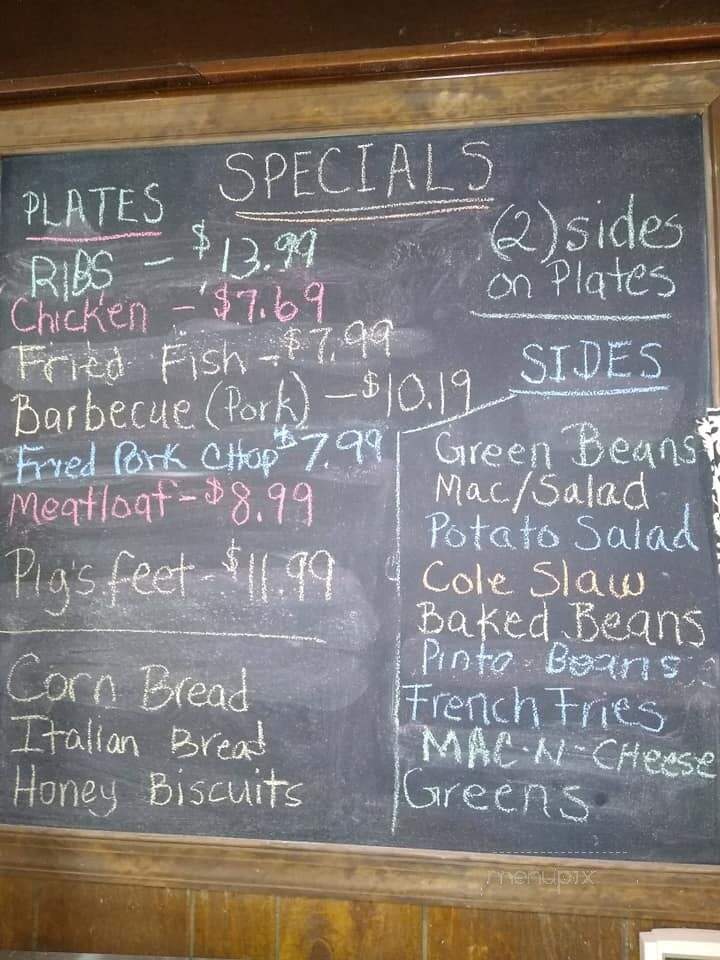 SPECIALS
PLATES
RIBS - $13.99
Chicken - $7.69
Fried Fish - $7.99
Barbecue (Pork) - $10.19
Fried Pork CHop $7.99
Meatloaf - $8.99
Pig's feet - $11.99
Corn Bread
Italian Bread
Honey Biscuits
(2) sides
on Plates
SIDES
Green Beans
Mac/Salad
Potato Salad
Cole Slaw
Baked Beans
Pinto Beans
French Fries
MAC-N-CHeese
Greens
menupix